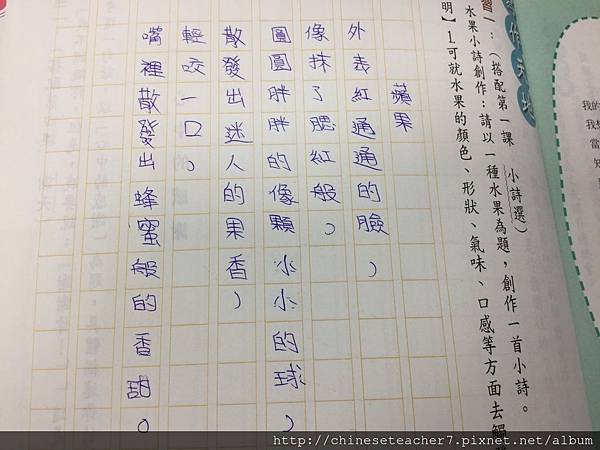 習一：（搭配第一課　小詩選）
水果小詩創作：請以一種水果為題，創作一首小詩。
明】1.可就水果的顏色、形狀、氣味、口感等方面去
蘋果
外表紅通通的臉，
像抹了腮紅般，
圓圓胖胖的像顆小小的球，
散發出迷人的果香，
輕咬一口，
嘴裡散發出蜂蜜般的香甜。
我的
我想
當
http://chineseteacher7.pixnet.net/album